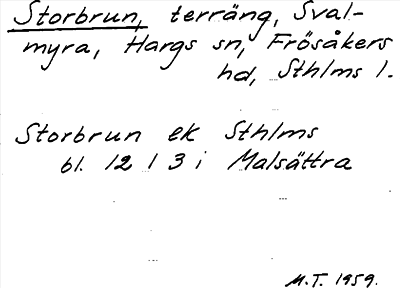 Storbrun, terräng, Sval-
myra, Hargs sn, Frösåkers
hd, Sthlms l.
Storbrun ek Sthlms
bl. 12 1 3 i Malsättra
M.T. 1959.